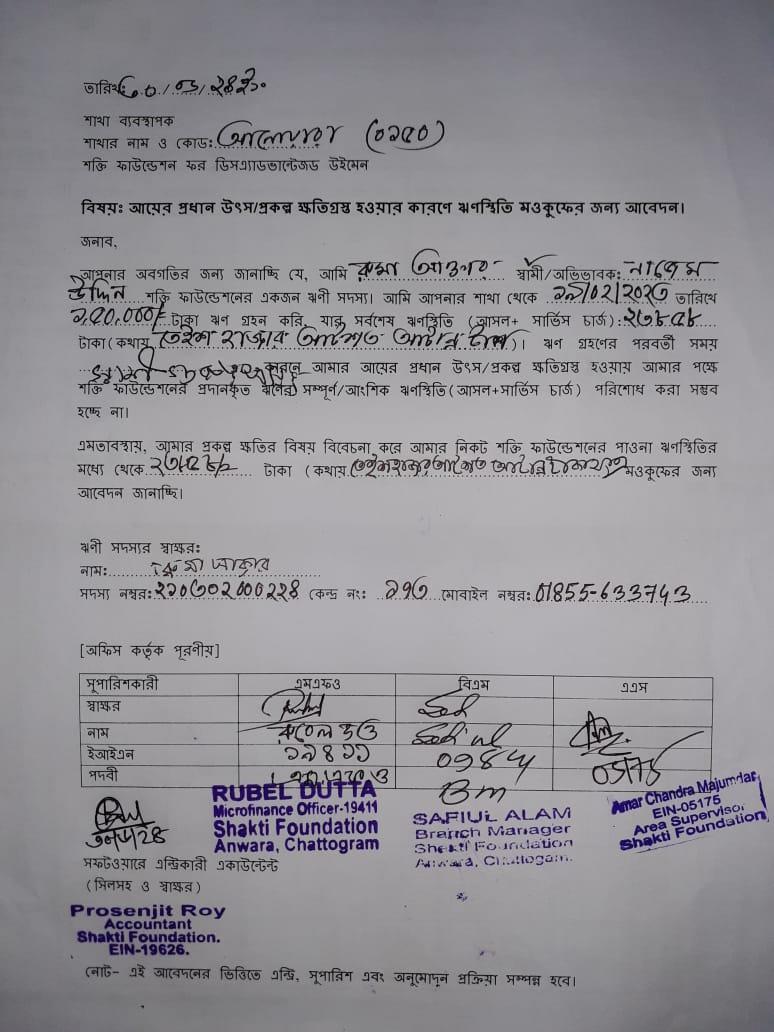 তারিখ:
শাখা ব্যবস্থাপক
শাখার নাম ও কোড: আনোয়ারা (০১৫০)
শক্তি ফাউন্ডেশন ফর ডিসএ্যাডভান্টেজড উইমেন
বিষয়ঃ আয়ের প্রধান উৎস/প্রকল্প ক্ষতিগ্রস্ত হওয়ার কারণে ঋণস্থিতি মওকুফের জন্য আবেদন।
জনাব,
আপনার অবগতির জন্য জানাচ্ছি যে, আমি রুমা আক্তার স্বামী/অভিভাবক: নাজেম
উদ্দিন শক্তি ফাউন্ডেশনের একজন ঋণী সদস্য। আমি আপনার শাখা থেকে ১৯/০২/২০২৩ তারিখে
১,৫০,০০০/- টাকা ঋণ গ্রহন করি, যার সর্বশেষ ঋণস্থিতি (আসল+ সার্ভিস চার্জ):
টাকা(কথায় তেইশ হাজার আটশত)। ঋণ গ্রহণের পরবর্তী সময়
কারনে আমার আয়ের প্রধান উৎস/প্রকল্প ক্ষতিগ্রস্ত হওয়ায় আমার পক্ষে
শক্তি ফাউন্ডেশনের প্রদানকৃত ঋণের সম্পূর্ণ/আংশিক ঋণস্থিতি(আসল+সার্ভিস চার্জ) পরিশোধ করা সম্ভব
হচ্ছে না।
এমতাবস্থায়, আমার প্রকল্প ক্ষতির বিষয় বিবেচনা করে আমার নিকট শক্তি ফাউন্ডেশনের পাওনা ঋণস্থিতির
মধ্যে থেকে টাকা (কথায় মওকুফের জন্য
আবেদন জানাচ্ছি।
ঋণী সদস্যর স্বাক্ষর:
নাম: রুমা আক্তার
সদস্য নম্বর: ২১০৩০২০০০২২৪ কেন্দ্র নং: ১৭৩ মোবাইল নম্বর: 01855-633743
[অফিস কর্তৃক পূরণীয়]
সুপারিশকারী এমএফও বিএম এএস
স্বাক্ষর
নাম রুবেল দত্ত
ইআইএন ১৯৪১১ 05175
পদবী এমএফও Bm
RUBEL DUTTA
Microfinance Officer-19411
Shakti Foundation
Anwara, Chattogram
SAFIUL ALAM
Branch Manager
Shakti Foundation
Anwara, Chattogam.
Amar Chandra Majumdar
EIN-05175
Area Supervisor
Shakti Foundation
সফটওয়ারে এন্ট্রিকারী একাউন্টেন্ট
(সিলসহ ও স্বাক্ষর)
Prosenjit Roy
Accountant
Shakti Foundation.
EIN-19626.
নোট- এই আবেদনের ভিত্তিতে এন্ট্রি, সুপারিশ এবং অনুমোদন প্রক্রিয়া সম্পন্ন হবে।